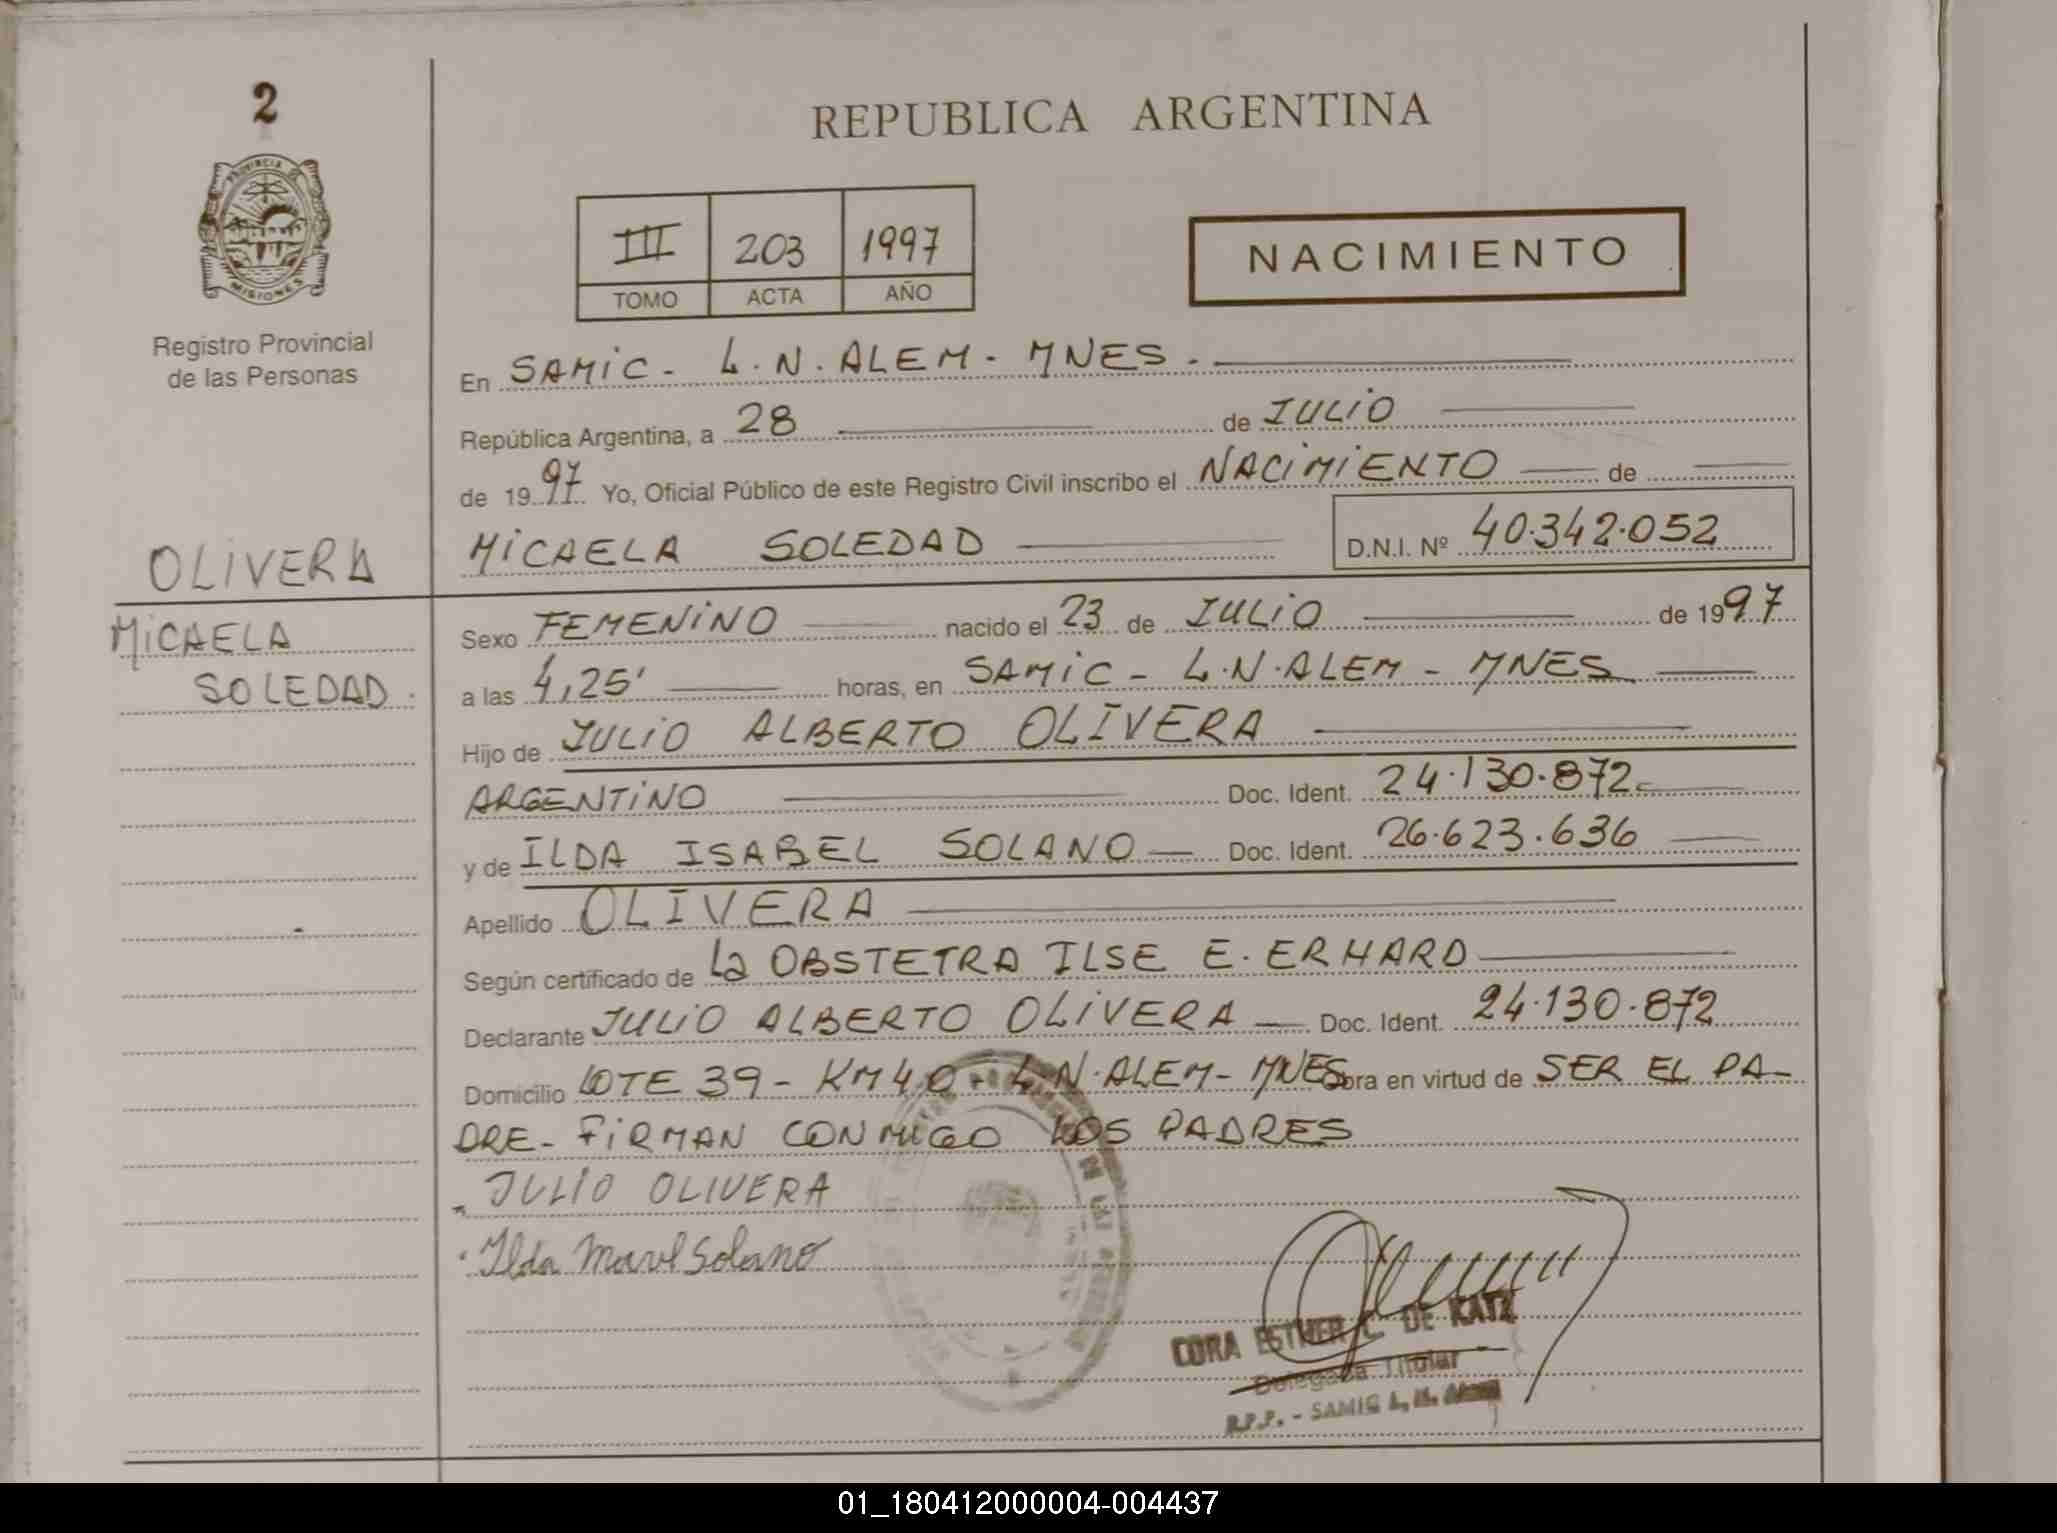 2
REPUBLICA ARGENTINA
PROVINCIA DE
MISIONES
Registro Provincial
de las Personas
III 203 1997
TOMO ACTA AÑO
NACIMIENTO
En SAMIC - L.N. ALEM - MNES -
República Argentina, a 28 de JULIO
de 1997 Yo, Oficial Público de este Registro Civil inscribo el NACIMIENTO de
MICAELA SOLEDAD D.N.I. Nº 40.342.052
OLIVERA
MICAELA
SOLEDAD.
Sexo FEMENINO nacido el 23 de JULIO de 1997
a las 4,25' horas, en SAMIC - L.N. ALEM - MNES
Hijo de JULIO ALBERTO OLIVERA
ARGENTINO Doc. Ident. 24.130.872
y de ILDA ISABEL SOLANO Doc. Ident. 26.623.636
Apellido OLIVERA
Según certificado de La OBSTETRA ILSE E. ERHARD
Declarante JULIO ALBERTO OLIVERA Doc. Ident. 24.130.872
Domicilio LOTE 39 - KM 40 - L.N. ALEM - MNES Obra en virtud de SER EL PA-
DRE - FIRMAN CONMIGO LOS PADRES
JULIO OLIVERA
Ilda Solano
CORA ESTHER C. DE KATZ
Delegada Titular
R.P.P. - SAMIC L. N.
01_180412000004-004437